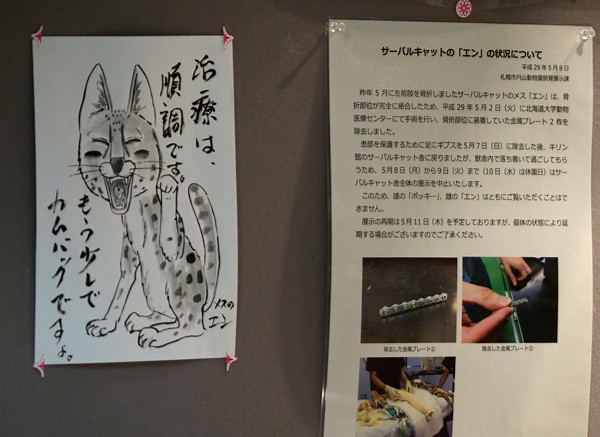 治療は、
順調です。
もう少しで
カムバックですよ。
メスの
エン
サーバルキャットの「エン」の状況について
平成 29 年 5 月 8 日
札幌市円山動物園飼育展示課
昨年 5 月に左前肢を骨折しましたサーバルキャットのメス「エン」は、骨
折部位が完全に癒合したため、平成 29 年 5 月 2 日（火）に北海道大学動物
医療センターにて手術を行い、骨折部位に装着していた金属プレート 2 枚を
除去しました。
患部を保護するために足にギプスを 5 月 7 日（日）に除去した後、キリン
館のサーバルキャット舎に戻りましたが、獣舎内で落ち着いて過ごしてもら
うため、5 月 8 日（月）から 9 日（火）まで（10 日（水）は休園日）はサー
バルキャット舎全体の展示を中止いたします。
このため、雄の「ポッキー」、雌の「エン」はともにご覧いただくことはで
きません。
展示の再開は 5 月 11 日（木）を予定しておりますが、個体の状態により延
期する場合がございますのでご了承ください。
除去した金属プレート①
除去した金属プレート②